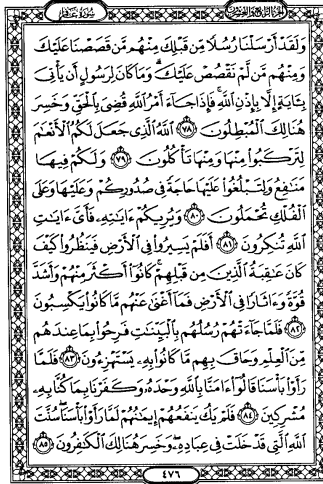 سورة غافر الجزء الرابع والعشرون
وَلَقَدْ أَرْسَلْنَا رُسُلًا مِّن قَبْلِكَ مِنْهُم مَّن قَصَصْنَا عَلَيْكَ
وَمِنْهُم مَّن لَّمْ نَقْصُصْ عَلَيْكَ ۗ وَمَا كَانَ لِرَسُولٍ أَن يَأْتِىَ
بِـَٔايَةٍ إِلَّا بِإِذْنِ ٱللَّهِ ۚ فَإِذَا جَآءَ أَمْرُ ٱللَّهِ قُضِىَ بِٱلْحَقِّ وَخَسِرَ
هُنَالِكَ ٱلْمُبْطِلُونَ ٧٨ ٱللَّهُ ٱلَّذِى جَعَلَ لَكُمُ ٱلْأَنْعَٰمَ
لِتَرْكَبُوا۟ مِنْهَا وَمِنْهَا تَأْكُلُونَ ٧٩ وَلَكُمْ فِيهَا
مَنَٰفِعُ وَلِتَبْلُغُوا۟ عَلَيْهَا حَاجَةً فِى صُدُورِكُمْ وَعَلَيْهَا وَعَلَى
ٱلْفُلْكِ تُحْمَلُونَ ٨٠ وَيُرِيكُمْ ءَايَٰتِهِۦ فَأَىَّ ءَايَٰتِ
ٱللَّهِ تُنكِرُونَ ٨١ أَفَلَمْ يَسِيرُوا۟ فِى ٱلْأَرْضِ فَيَنظُرُوا۟ كَيْفَ
كَانَ عَٰقِبَةُ ٱلَّذِينَ مِن قَبْلِهِمْ ۚ كَانُوٓا۟ أَكْثَرَ مِنْهُمْ وَأَشَدَّ
قُوَّةً وَءَاثَارًا فِى ٱلْأَرْضِ فَمَآ أَغْنَىٰ عَنْهُم مَّا كَانُوا۟ يَكْسِبُونَ
٨٢ فَلَمَّا جَآءَتْهُمْ رُسُلُهُم بِٱلْبَيِّنَٰتِ فَرِحُوا۟ بِمَا عِندَهُم
مِّنَ ٱلْعِلْمِ وَحَاقَ بِهِم مَّا كَانُوا۟ بِهِۦ يَسْتَهْزِءُونَ ٨٣ فَلَمَّا
رَأَوْا۟ بَأْسَنَا قَالُوٓا۟ ءَامَنَّا بِٱللَّهِ وَحْدَهُۥ وَكَفَرْنَا بِمَا كُنَّا بِهِۦ
مُشْرِكِينَ ٨٤ فَلَمْ يَكُ يَنفَعُهُمْ إِيمَٰنُهُمْ لَمَّا رَأَوْا۟ بَأْسَنَا ۖ سُنَّتَ
ٱللَّهِ ٱلَّتِى قَدْ خَلَتْ فِى عِبَادِهِۦ ۖ وَخَسِرَ هُنَالِكَ ٱلْكَٰفِرُونَ ٨٥
٤٧٦